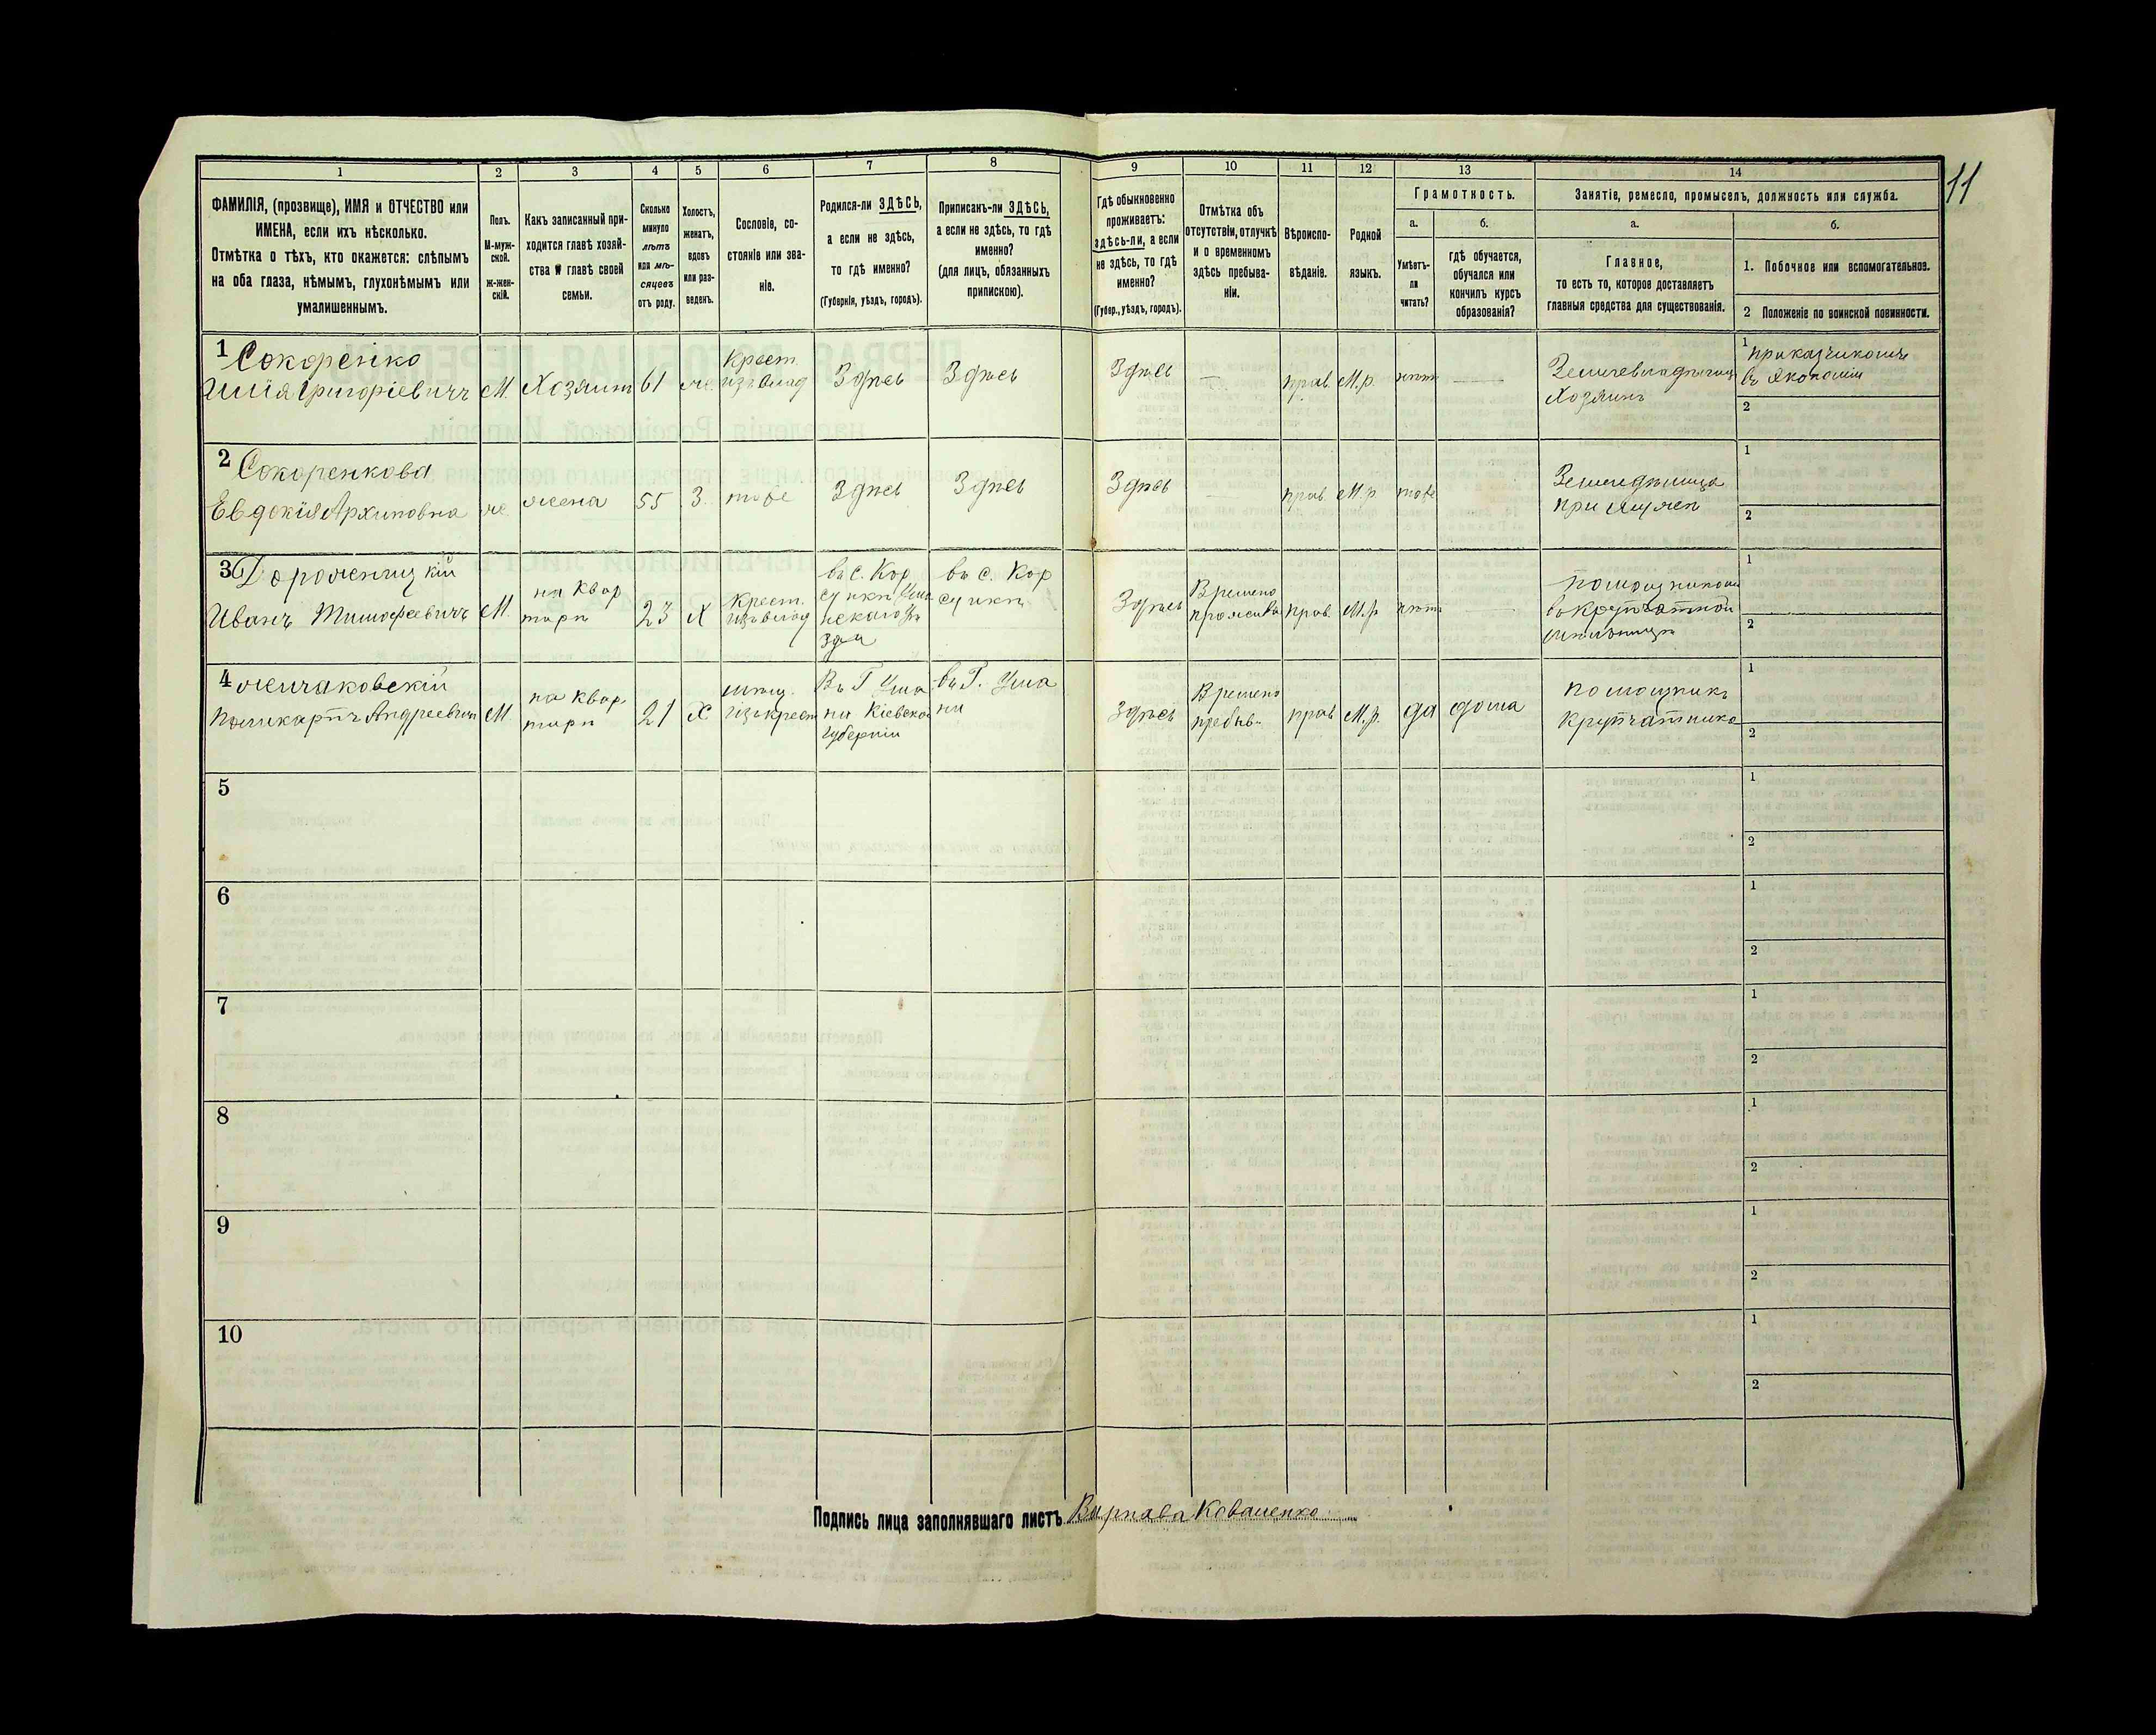 11
1 2 3 4 5 6 7 8 9 10 11 12 13 14
ФАМИЛІЯ, (прозвище), ИМЯ и ОТЧЕСТВО или
ИМЕНА, если ихъ нѣсколько.
Отмѣтка о тѣхъ, кто окажется: слѣпымъ
на оба глаза, нѣмымъ, глухонѣмымъ или
умалишеннымъ.
Полъ.
М-муж-
ской.
ж-жен-
скій.
Какъ записанный при-
ходится главѣ хозяй-
ства и главѣ своей
семьи.
Сколько
минуло
лѣтъ
или мѣ-
сяцевъ
отъ роду.
Холостъ,
женатъ,
вдовъ
или раз-
веденъ.
Сословіе, со-
стояніе или зва-
ніе.
Родился-ли ЗДѢСЬ,
а если не здѣсь,
то гдѣ именно?
(Губернія, уѣздъ, городъ).
Приписанъ-ли ЗДѢСЬ,
а если не здѣсь, то гдѣ
именно?
(для лицъ, обязанныхъ
припискою).
Гдѣ обыкновенно
проживаетъ:
здѣсь-ли, а если
не здѣсь, то гдѣ
именно?
(Губер., уѣздъ, городъ).
Отмѣтка объ
отсутствіи, отлучкѣ
и о временномъ
здѣсь пребыва-
ніи.
Вѣроиспо-
вѣданіе.
Родной
языкъ.
Грамотность.
а.
Умѣетъ-
ли
читать?
б.
гдѣ обучается,
обучался или
кончилъ курсъ
образованія?
Занятіе, ремесло, промыселъ, должность или служба.
а.
Главное,
то есть то, которое доставляетъ
главныя средства для существованія.
б.
1. Побочное или вспомогательное.
2 Положеніе по воинской повинности.
1 Сокоренко
Илія Григоріевичъ
М.
Хозяинъ
61
же.
Крест.
изъ влад
Здѣсь
Здѣсь
Здѣсь
—
прав.
М.р.
нѣтъ
—
Землевладѣлецъ
Хозяинъ
1
приказчикомъ
въ Экономіи
2
2 Сокоренкова
Евдокія Архиповна
же.
жена
55
З.
тоже
Здѣсь
Здѣсь
Здѣсь
—
прав.
М.р
тоже
при мужѣ
1
2
3
Иванъ Тимофеевичъ
М.
на квар
тирѣ
23
Х
Крест.
изъ влад
въ с. Кор
сункѣ Ума
нскаго уѣ
зда
въ с. Кор
сункѣ
Здѣсь
Времено
прожива
прав.
М.р
нѣтъ
—
помощникомъ
въ крупчатной
мѣльницѣ
1
2
4
Поликарпъ Андреевичъ
М
на квар
тирѣ
21
Х
мѣщ.
изъ крест
Въ Г Ума
ни Кіевской
Губерніи
въ Г. Ума
ни
Здѣсь
Времено
пребыв-
прав
М.р.
да
дома
помощникъ
крупчатника
1
2
5
1
2
6
1
2
7
1
2
8
1
2
9
1
2
10
1
2
Подпись лица заполнявшаго листъ Варнава Коваленко